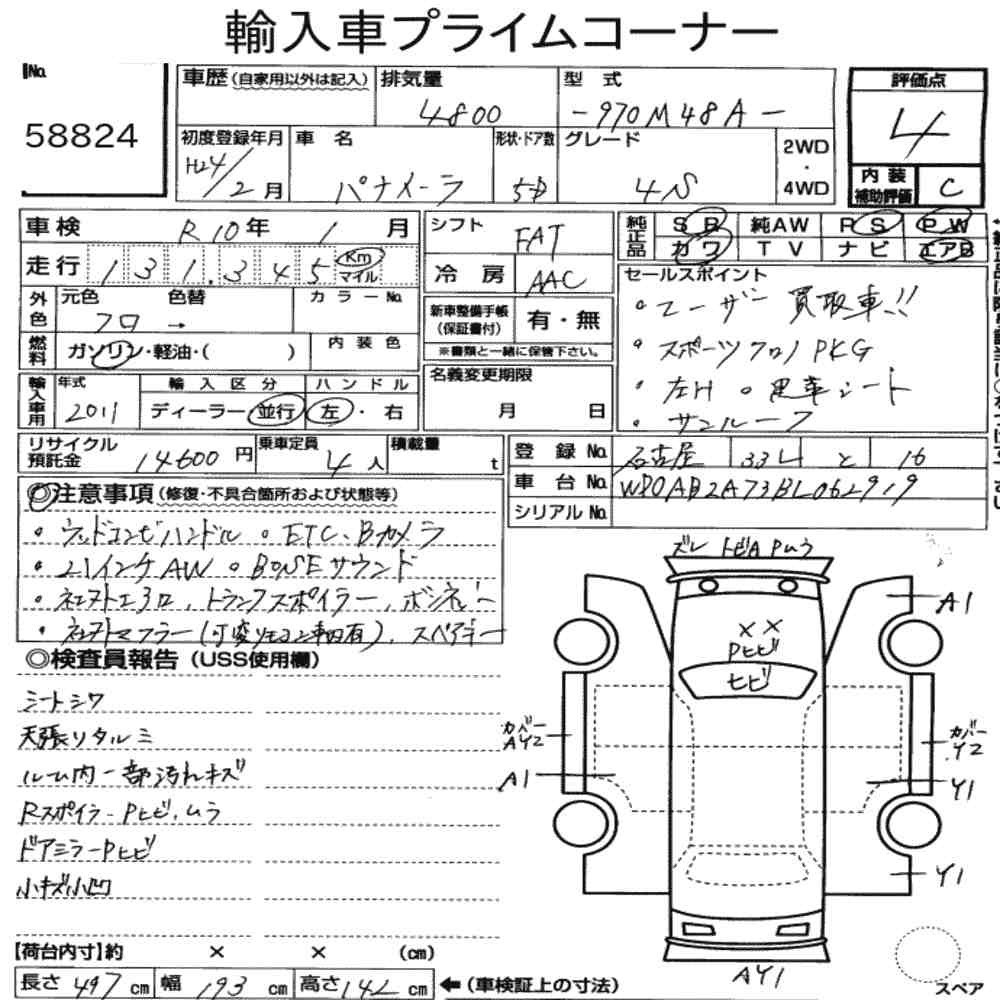 輸入車プライムコーナー
No.
58824
車歴(自家用以外は記入)
排気量
4800
型 式
-970M48A-
評価点
4
内装補助評価
C
初度登録年月
H24/2月
車 名
パナメーラ
形状・ドア数
5D
グレード
4S
2WD
・
4WD
車検 R10年 1月
走行 131,345 Km マイル
外色
元色 色替
クロ →
カラーNo.
燃料
ガソリン・軽油・( )
内装色
シフト
FAT
冷房
AAC
新車整備手帳
(保証書付)
有・無
※書類と一緒に保管下さい。
純正品
SB 純AW RS PW
カワ TV ナビ エアB
セールスポイント
・ユーザー買取車!!
・スポーツクロノPKG
・左H ・黒革シート
・サンルーフ
輸入車用
年式
2011
輸入区分
ディーラー 並行
ハンドル
左・右
名義変更期限
月 日
リサイクル預託金
14600円
乗車定員
4人
積載量
t
登録No. 名古屋 334 と 16
車台No. WP0AB2A73BL062919
シリアルNo.
◎注意事項(修復・不具合箇所および状態等)
・ウッドコンビハンドル ・ETC・Bカメラ
・21インチAW ・BOSEサウンド
・社外エアロ、トランクスポイラー、ボンネット
・社外マフラー(可変リモコン車内有)、スペアキー
◎検査員報告(USS使用欄)
シートシワ
天張リタルミ
ルーム内一部汚れキズ
Rスポイラ-Pヒビ、ムラ
ドアミラーPヒビ
小キズ小凹
ズレ トビA Pムラ
××
Pヒビ
ヒビ
A1
カバー
AY2
カバー
Y2
A1
Y1
Y1
AY1
スペア
【荷台内寸】約 × × (cm)
長さ497cm 幅193cm 高さ142cm ←(車検証上の寸法)